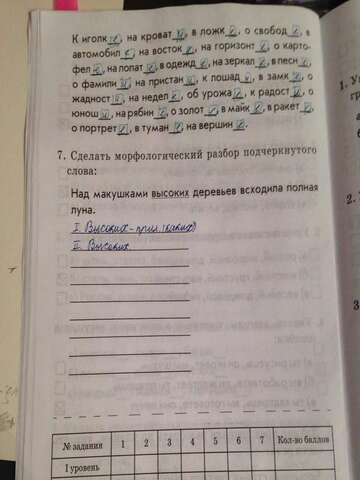 К иголке, на кровати, в ложке, о свободе, в
автомобиле, на востоке, на горизонте, о карто-
феле, на лопате, в одежде, на зеркале, в песне,
о фамилии, на пристани, к лошади, в замке, о
жадности, на неделе, об урожае, к радости, о
юноши, на рябине, о золоте, в майке, в ракете,
о портрете, в тумане, на вершине.
7. Сделать морфологический разбор подчеркнутого
слова:
Над макушками высоких деревьев всходила полная
луна.
I. Высоких - прил. (каких)
II. Высоких
№ задания 1 2 3 4 5 6 7 Кол-во баллов
I уровень
1. У
гр
а
2.
3